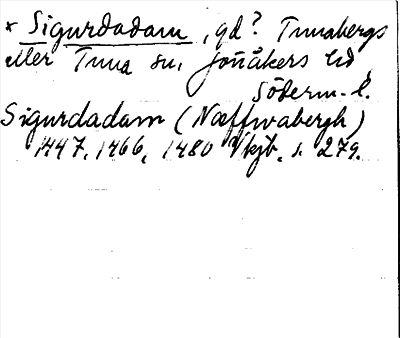 * Sigurdadam, gd? Tunabergs
eller Tuna sn, Jönåkers hd,
Söderm. l.
Sigurdadam (Næffwabergh)
1447, 1466, 1480 Vkjb, s. 279.